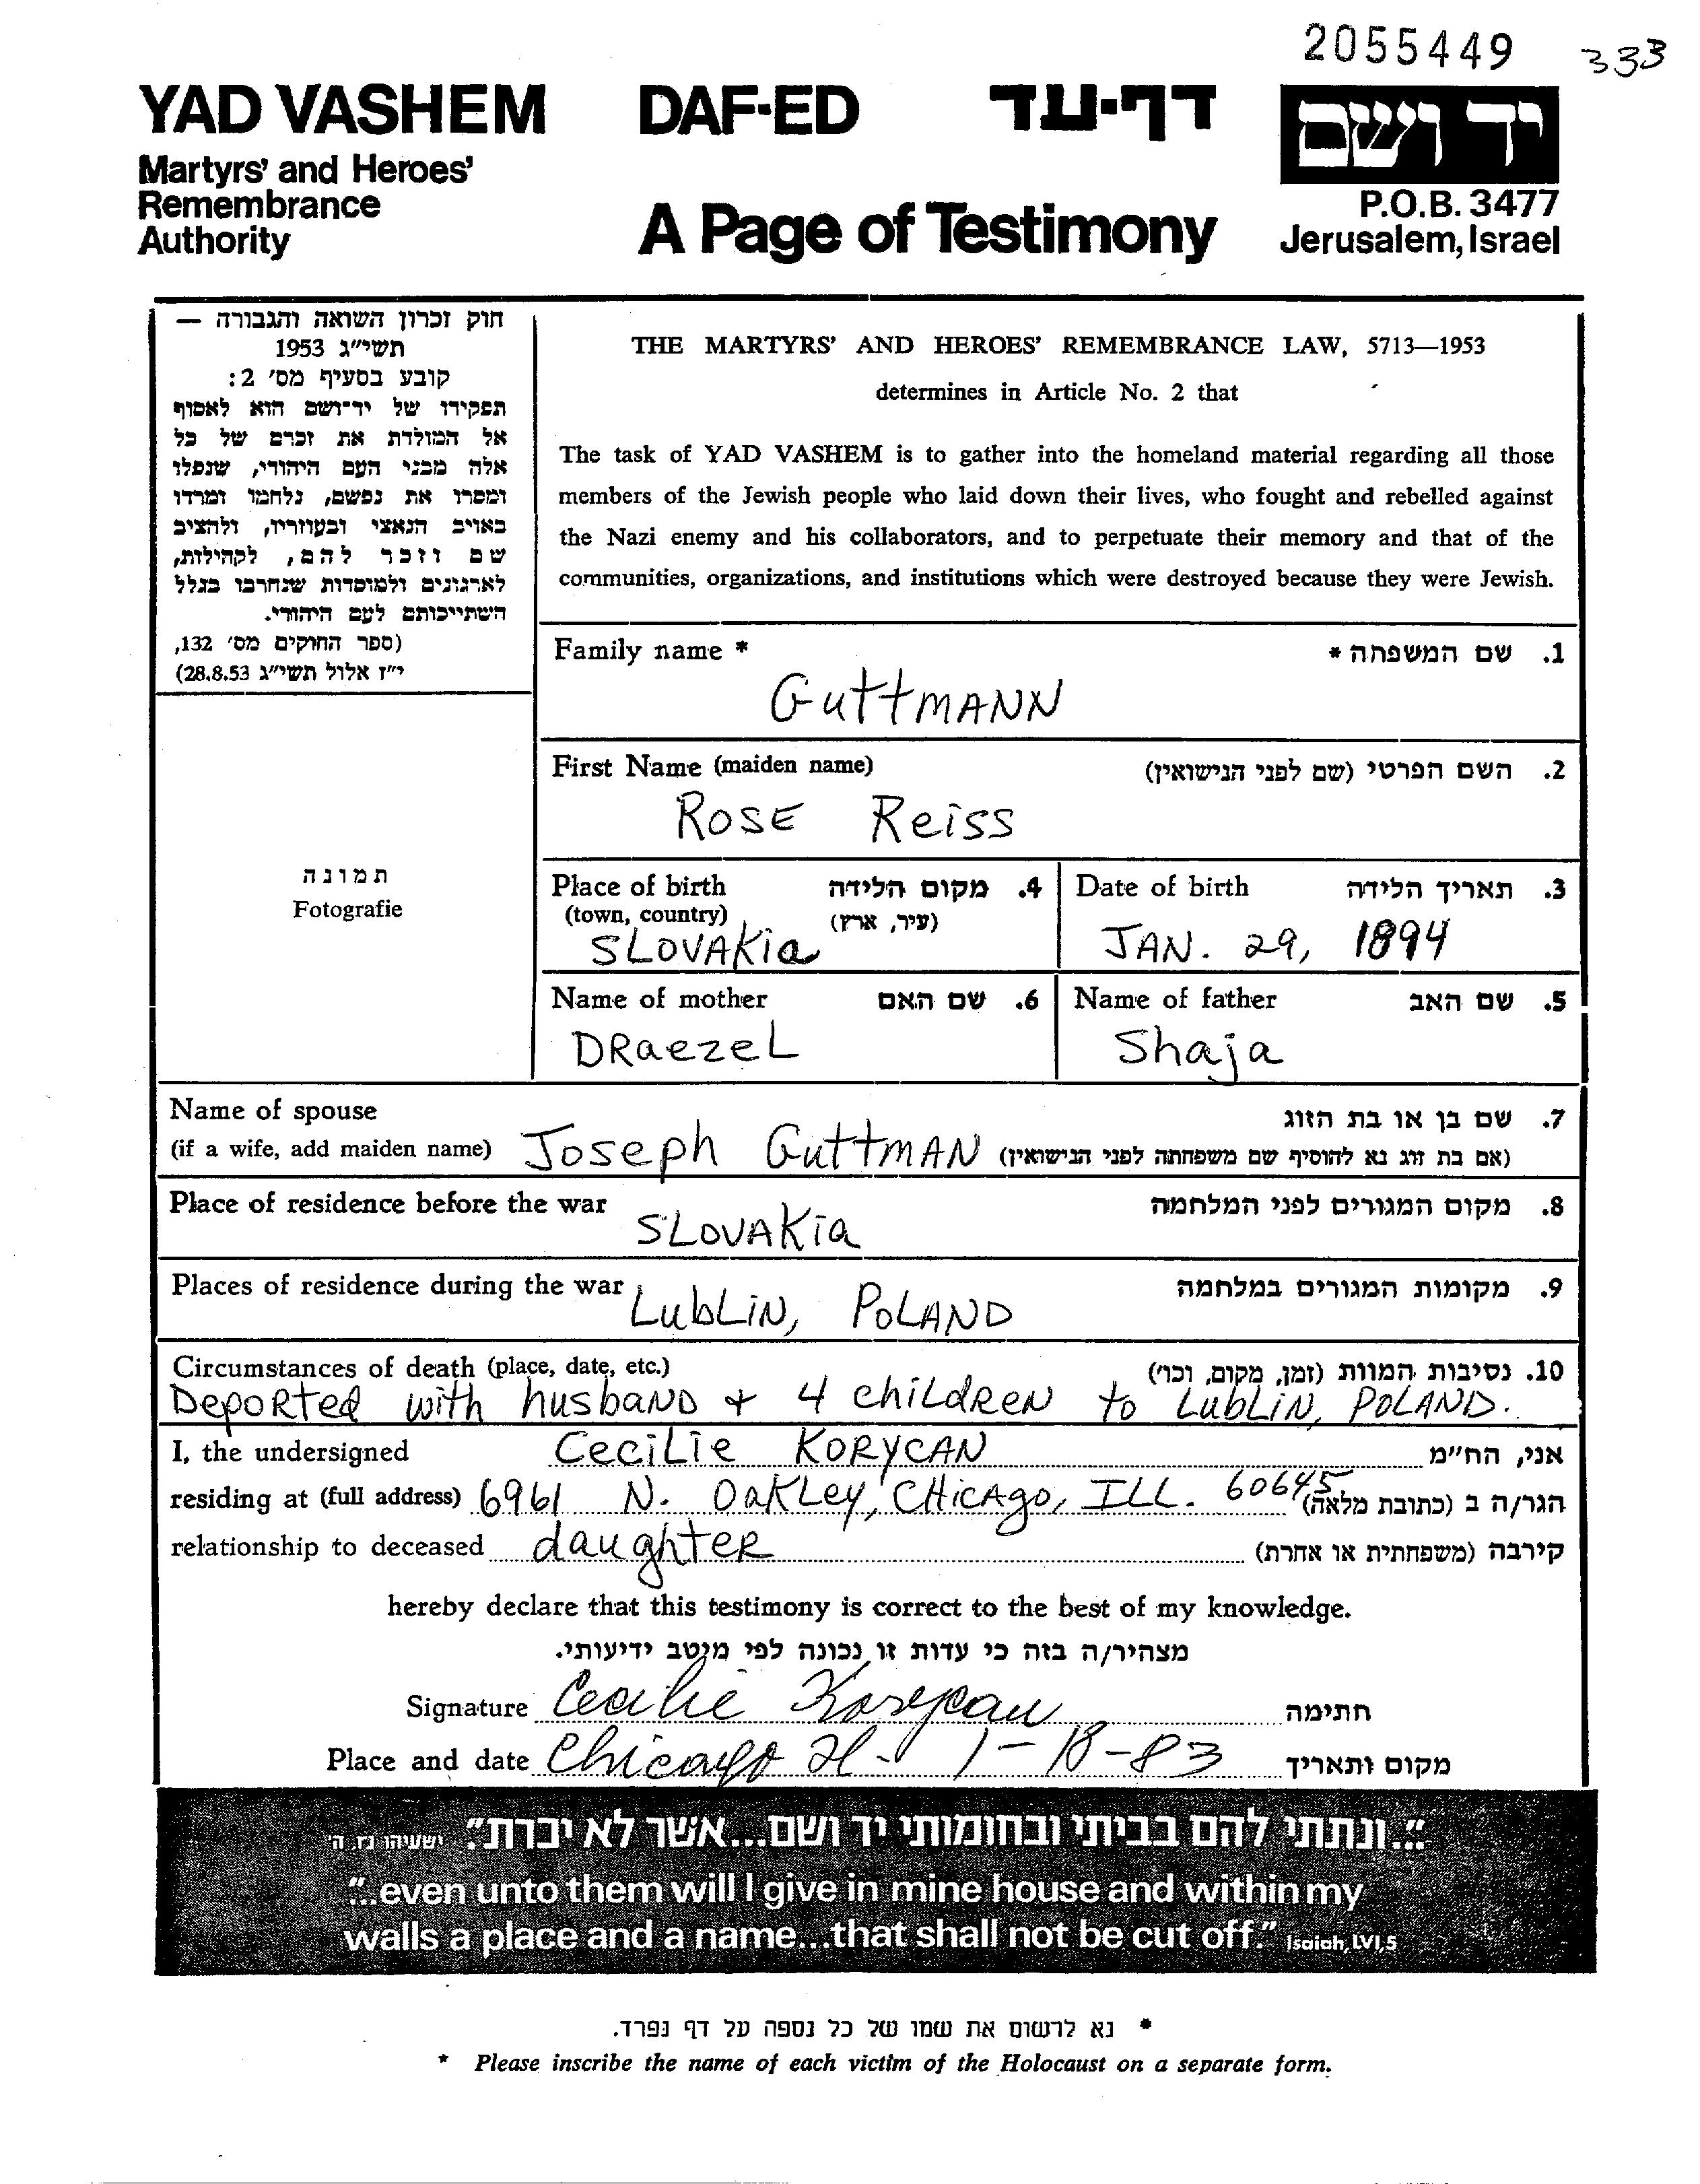 2055449 333
YAD VASHEM DAF-ED דף-עד יד ושם
Martyrs' and Heroes'
Remembrance
Authority
A Page of Testimony
P.O.B. 3477
Jerusalem, Israel
חוק זכרון השואה והגבורה —
תשי״ג 1953
קובע בסעיף מס' 2:
תפקידו של יד-ושם הוא לאסוף
אל המולדת את זכרם של כל
אלה מבני העם היהודי, שנפלו
ומסרו את נפשם, נלחמו ומרדו
באויב הנאצי ובעוזריו, ולהציב
שם וזכר להם, לקהילות,
לארגונים ולמוסדות שנחרבו בגלל
השתייכותם לעם היהודי.
(ספר החוקים מס' 132,
י״ז אלול תשי״ג 28.8.53)
THE MARTYRS' AND HEROES' REMEMBRANCE LAW, 5713—1953
determines in Article No. 2 that
The task of YAD VASHEM is to gather into the homeland material regarding all those
members of the Jewish people who laid down their lives, who fought and rebelled against
the Nazi enemy and his collaborators, and to perpetuate their memory and that of the
communities, organizations, and institutions which were destroyed because they were Jewish.
תמונה
Fotografie
Family name * 1. שם המשפחה *
GuttMANN
First Name (maiden name) 2. השם הפרטי (שם לפני הנישואין)
ROSE Reiss
Place of birth 4. מקום הלידה
(town, country) (עיר, ארץ)
SLOVAKia
Date of birth 3. תאריך הלידה
JAN. 29, 1894
Name of mother 6. שם האם
DRaezeL
Name of father 5. שם האב
Shaja
Name of spouse 7. שם בן או בת הזוג
(if a wife, add maiden name) Joseph GuttMAN (אם בת זוג נא להוסיף שם משפחתה לפני הנישואין)
Place of residence before the war 8. מקום המגורים לפני המלחמה
SLOVAKia
Places of residence during the war 9. מקומות המגורים במלחמה
LubLiN, PoLAND
Circumstances of death (place, date, etc.) 10. נסיבות המוות (זמן, מקום, וכו')
DepoRted with husbaND + 4 chiLdReN to LubLiN, POLAND.
I, the undersigned CeciLie KORYCAN אני, הח״מ
residing at (full address) 6961 N. OaKLey, CHicAgo, ILL. 60645 הגר/ה ב (כתובת מלאה)
relationship to deceased daughteR קירבה (משפחתית או אחרת)
hereby declare that this testimony is correct to the best of my knowledge.
מצהיר/ה בזה כי עדות זו נכונה לפי מיטב ידיעותי.
Signature Cecilie Korycan חתימה
Place and date Chicago Il. 1-18-83 מקום ותאריך
"...ונתתי להם בביתי ובחומותי יד ושם...אשר לא יכרת". ישעיהו נו, ה
"...even unto them will I give in mine house and within my
walls a place and a name...that shall not be cut off." Isaiah, LVI,5
* נא לרשום את שמו של כל נספה על דף נפרד.
* Please inscribe the name of each victim of the Holocaust on a separate form.